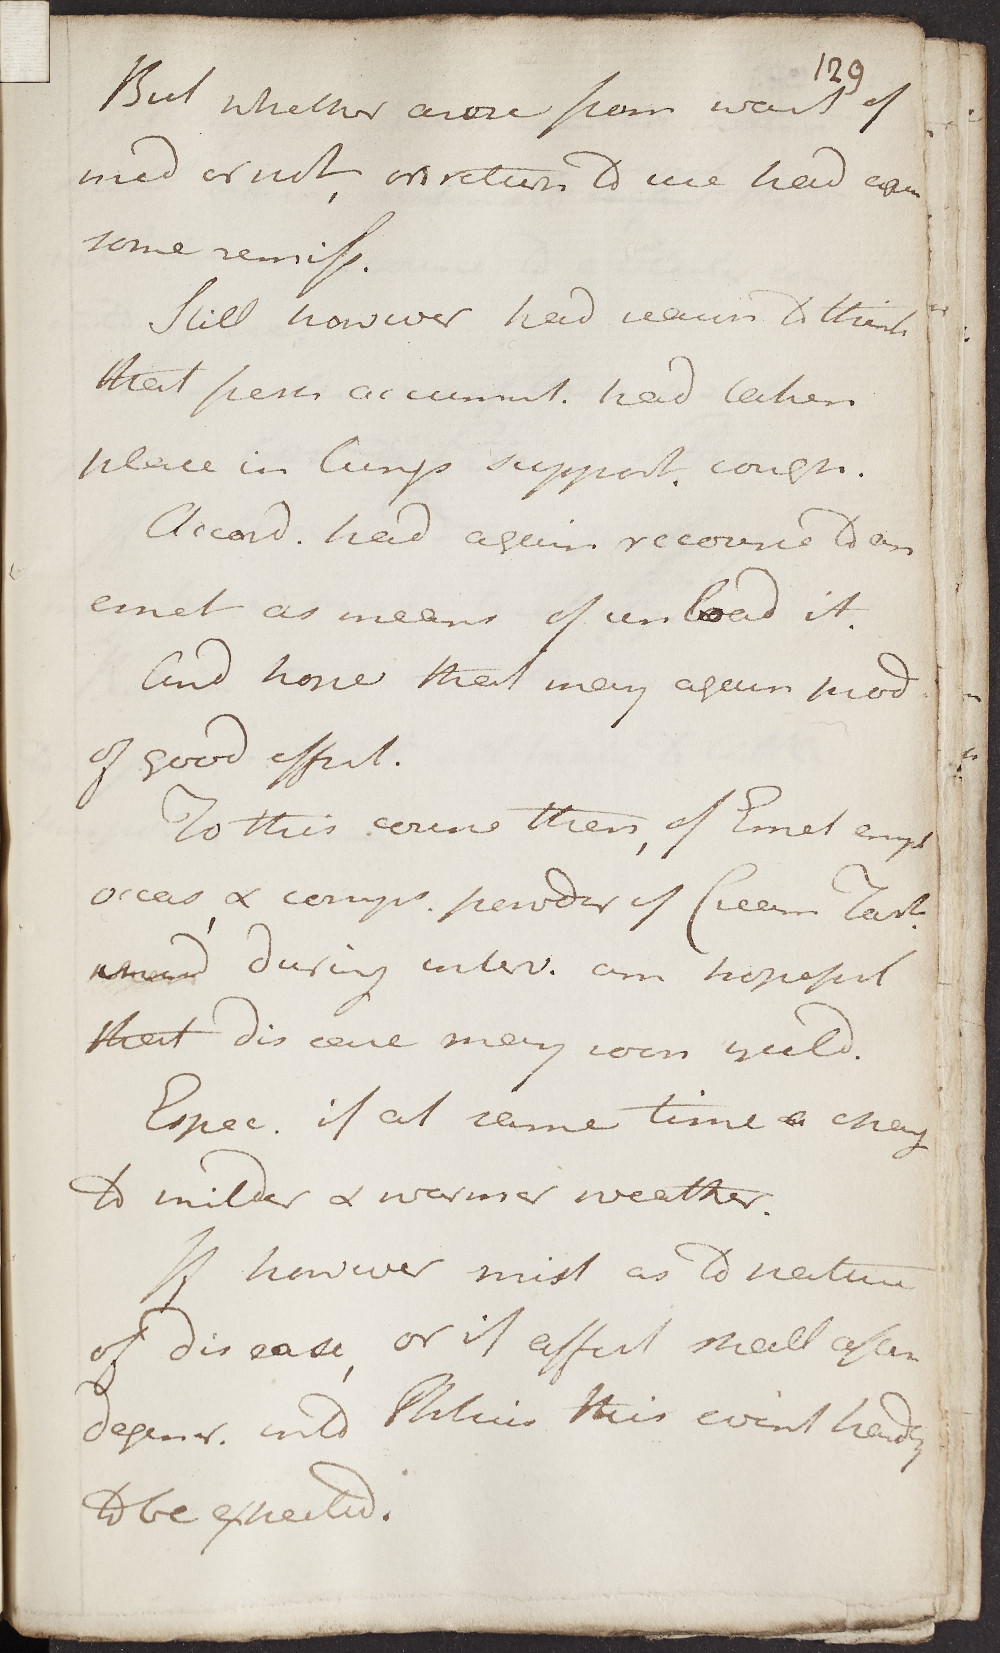 129
But whether arose from want of
med or not, on return to use had again
some remiss.
Still however had reason to think
that fresh accumul. had taken
place in lungs support. cough.
Accord. had again recourse to an
emet as means of unload it.
And hope that may again prod
of good effect.
To this course then, of Emet empl
occas, & comps. powder of Cream Tart.
during interv. am hopeful
that disease may soon yield.
Espec. if at same time a chang
to milder & warmer weather.
If however mist as to nature
of disease, or if affect shall after
degener. into Phthisis this event hardly
to be expected.